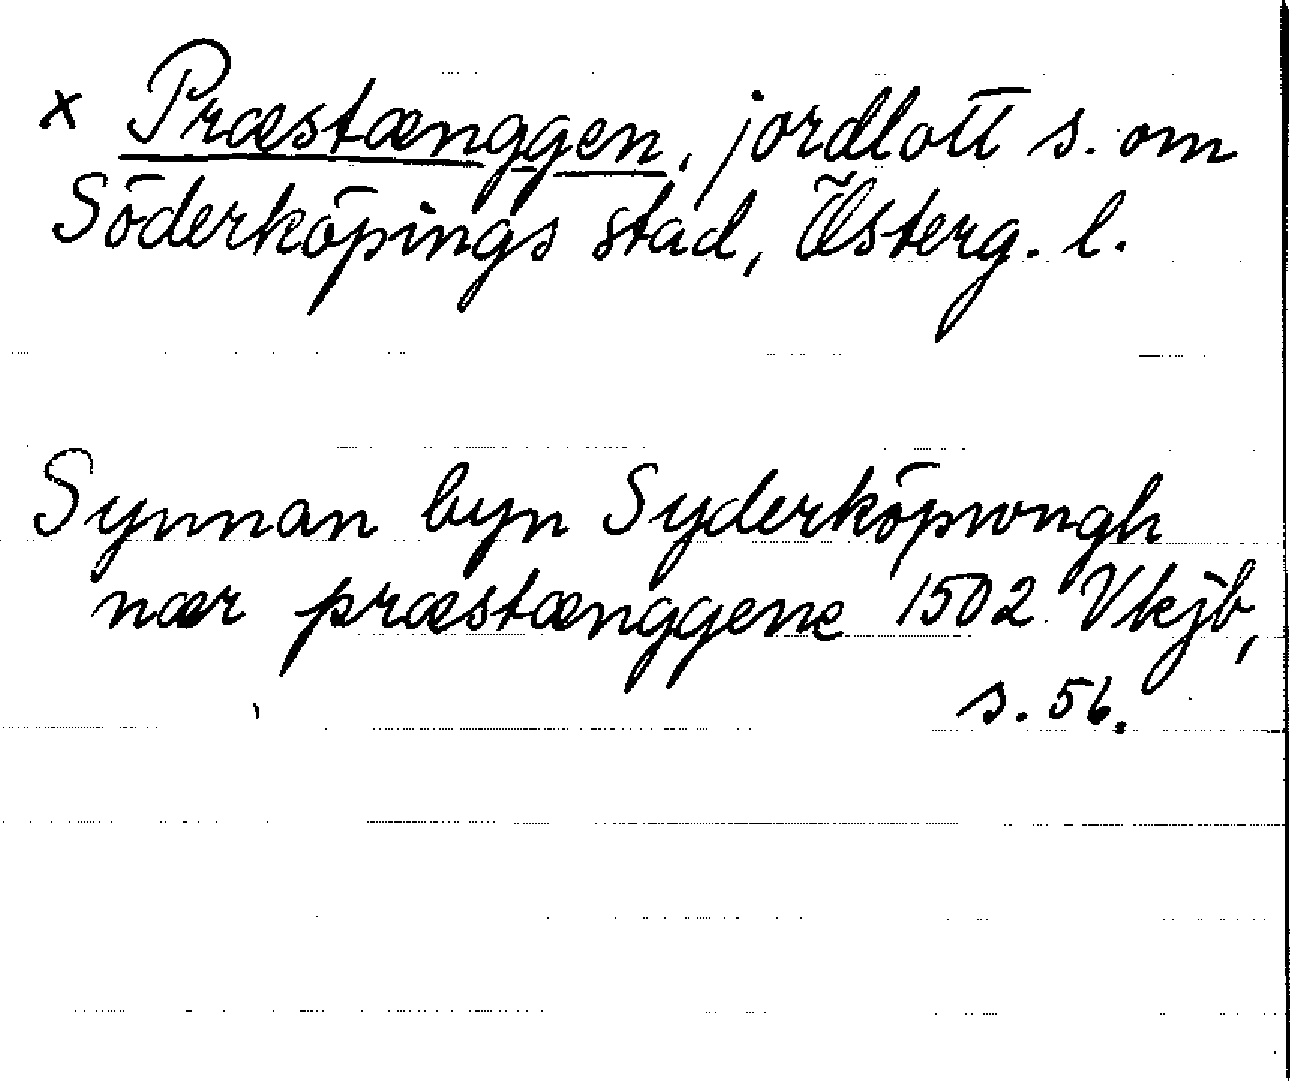 x Præstænggen, jordlott s. om
Söderköpings stad, Österg. l.
Synnan byn Syderköpungh
nær præstænggene 1502 Vkjb,
s. 56.